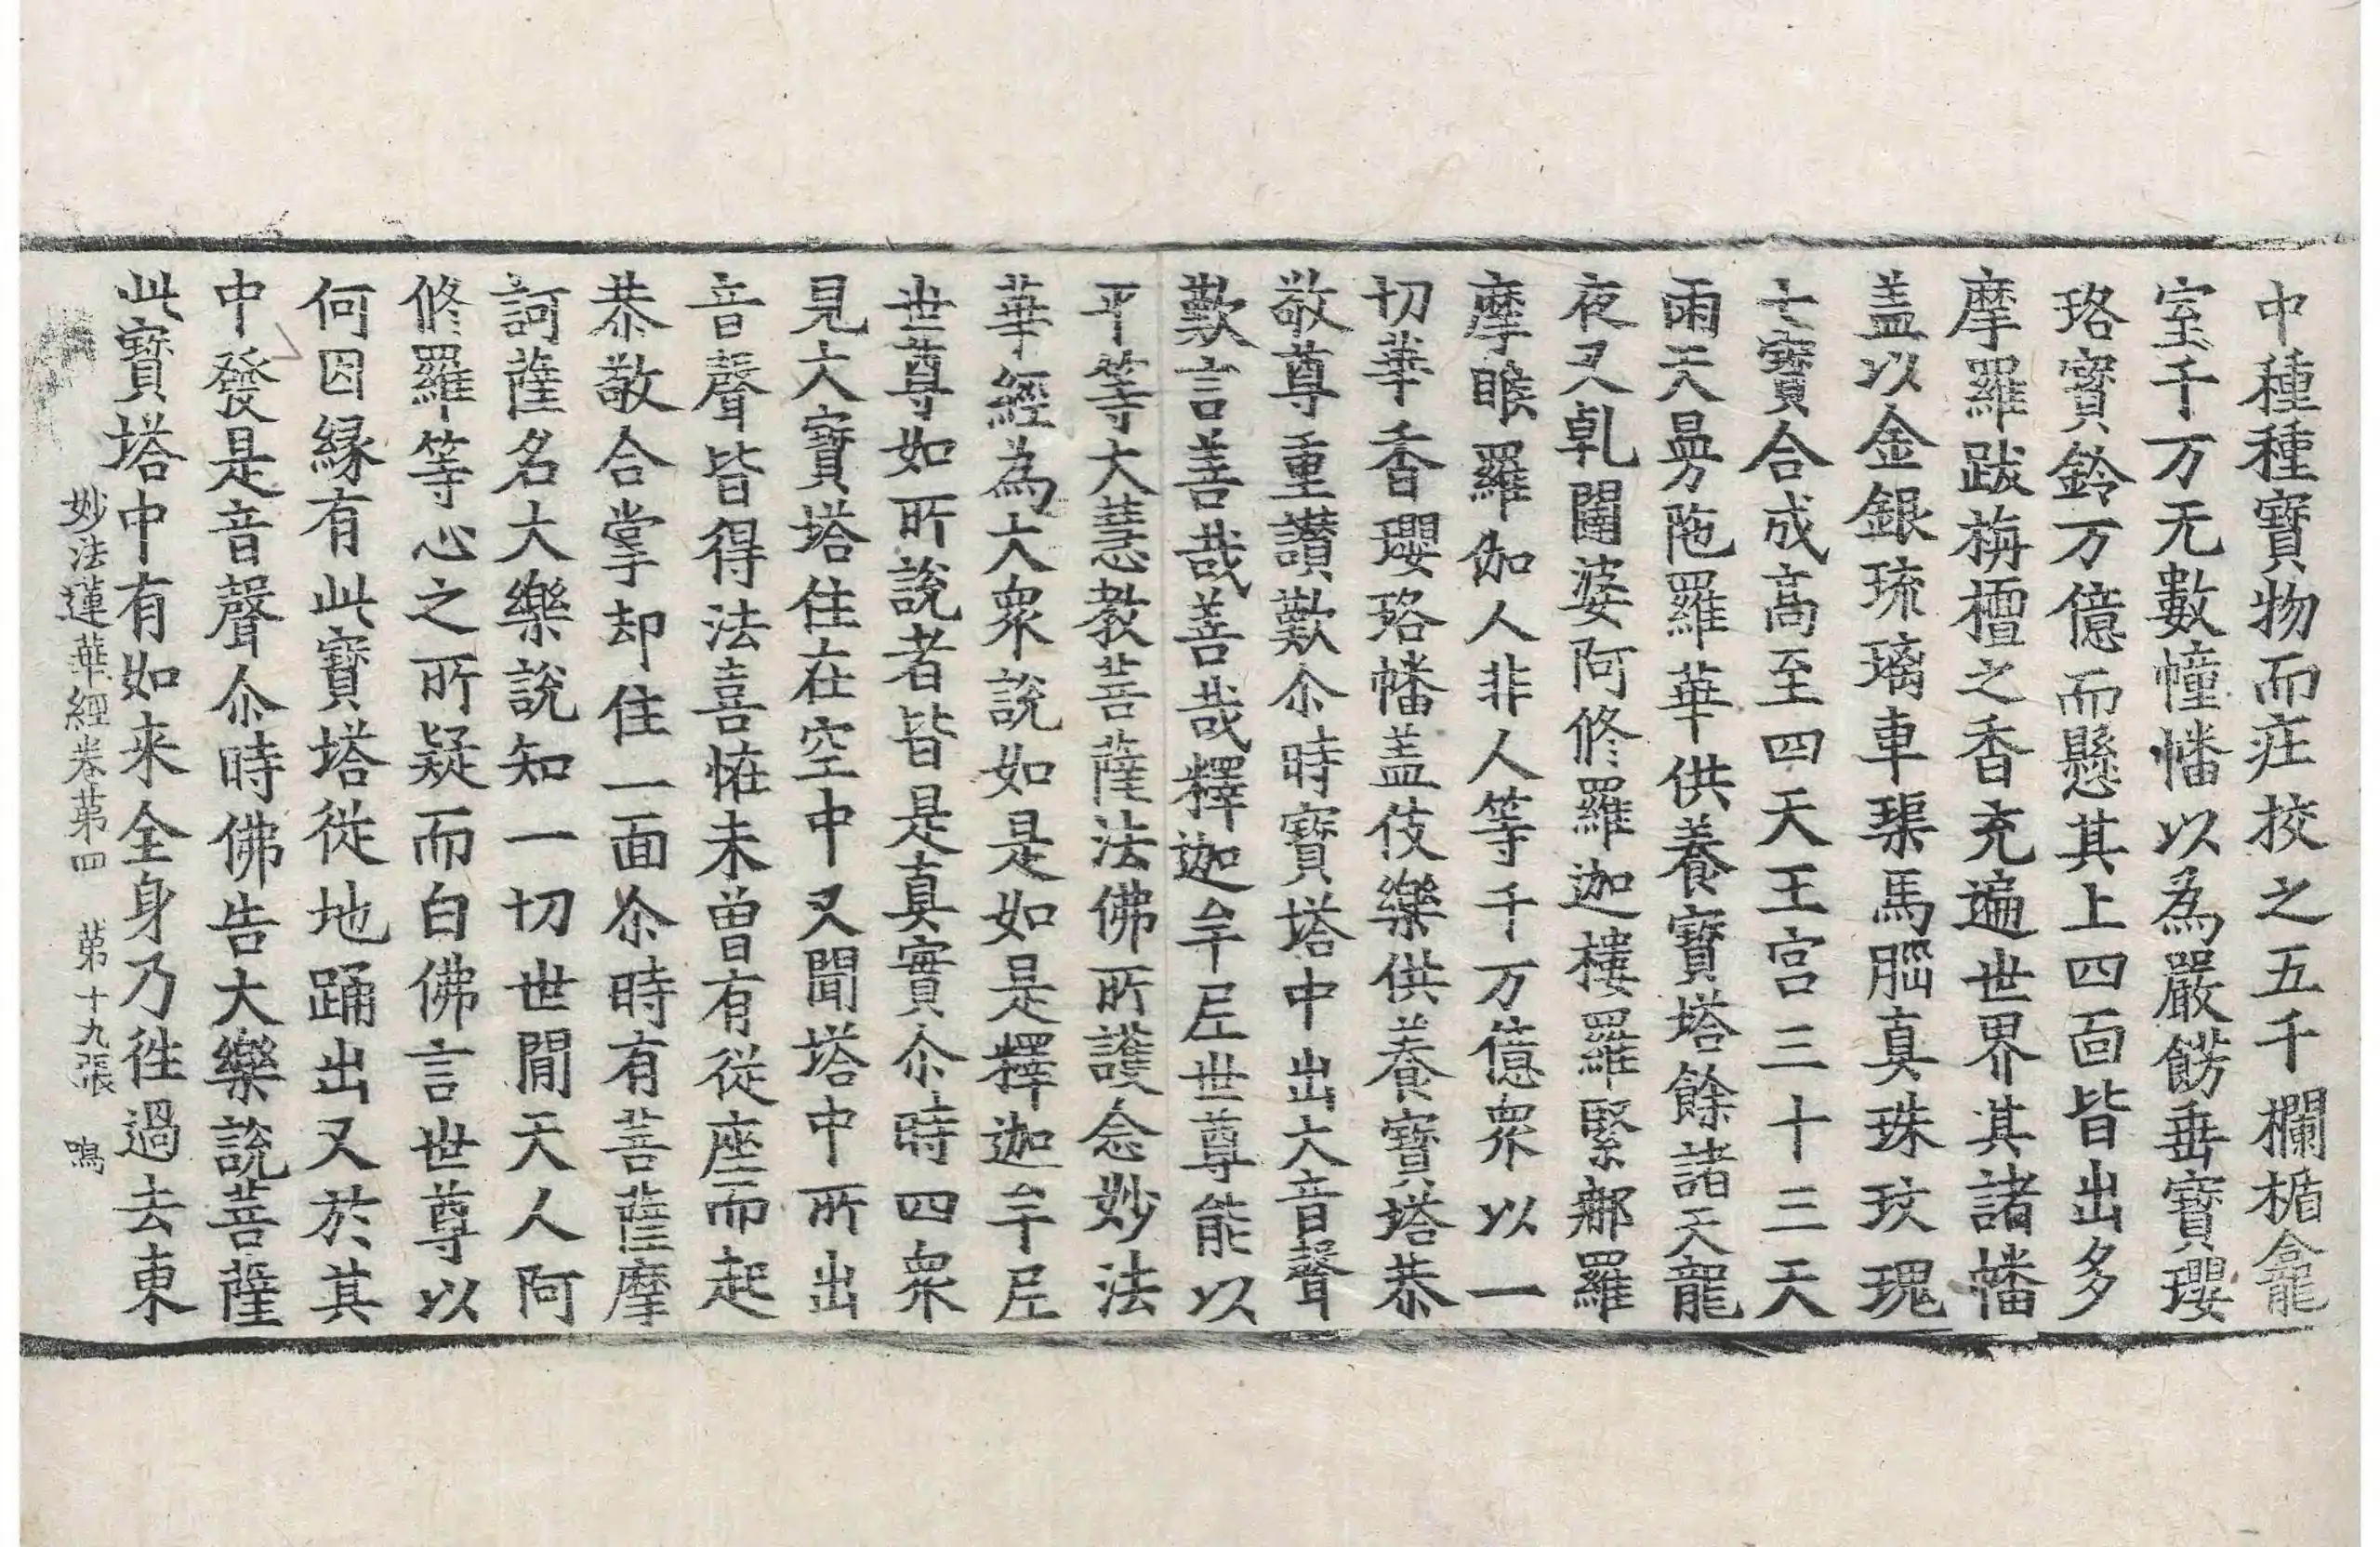 中種種寶物而庄挍之五千欄楯龕
室千万无數幢幡以為嚴餝垂寶瓔
珞寶鈴万億而懸其上四面皆出多
摩羅跋栴檀之香充遍世界其諸幡
盖以金銀琉璃車璖馬𦜅真珠玫瑰
七寶合成高至四天王宮三十三天
雨天曼陁羅華供養寶塔餘諸天龍
夜叉乹闥婆阿修羅迦樓羅緊那羅
摩睺羅伽人非人等千万億衆以一
切華香瓔珞幡盖伎樂供養寶塔恭
敬尊重讃歎尒時寶塔中出大音聲
歎言善哉善哉釋迦牟尼世尊能以
平等大慧教菩薩法佛所護念妙法
華經為大衆說如是如是釋迦牟尼
世尊如所說者皆是真實尒時四衆
見大寶塔住在空中又聞塔中所出
音聲皆得法喜恠未曾有從座而起
恭敬合掌却住一面尒時有菩薩摩
訶薩名大樂說知一切世間天人阿
修羅等心之所疑而白佛言世尊以
何因緣有此寶塔從地踊出又於其
中發是音聲尒時佛告大樂說菩薩
此寶塔中有如来全身乃徃過去東
妙法蓮華經卷苐四 苐十九張 鳴